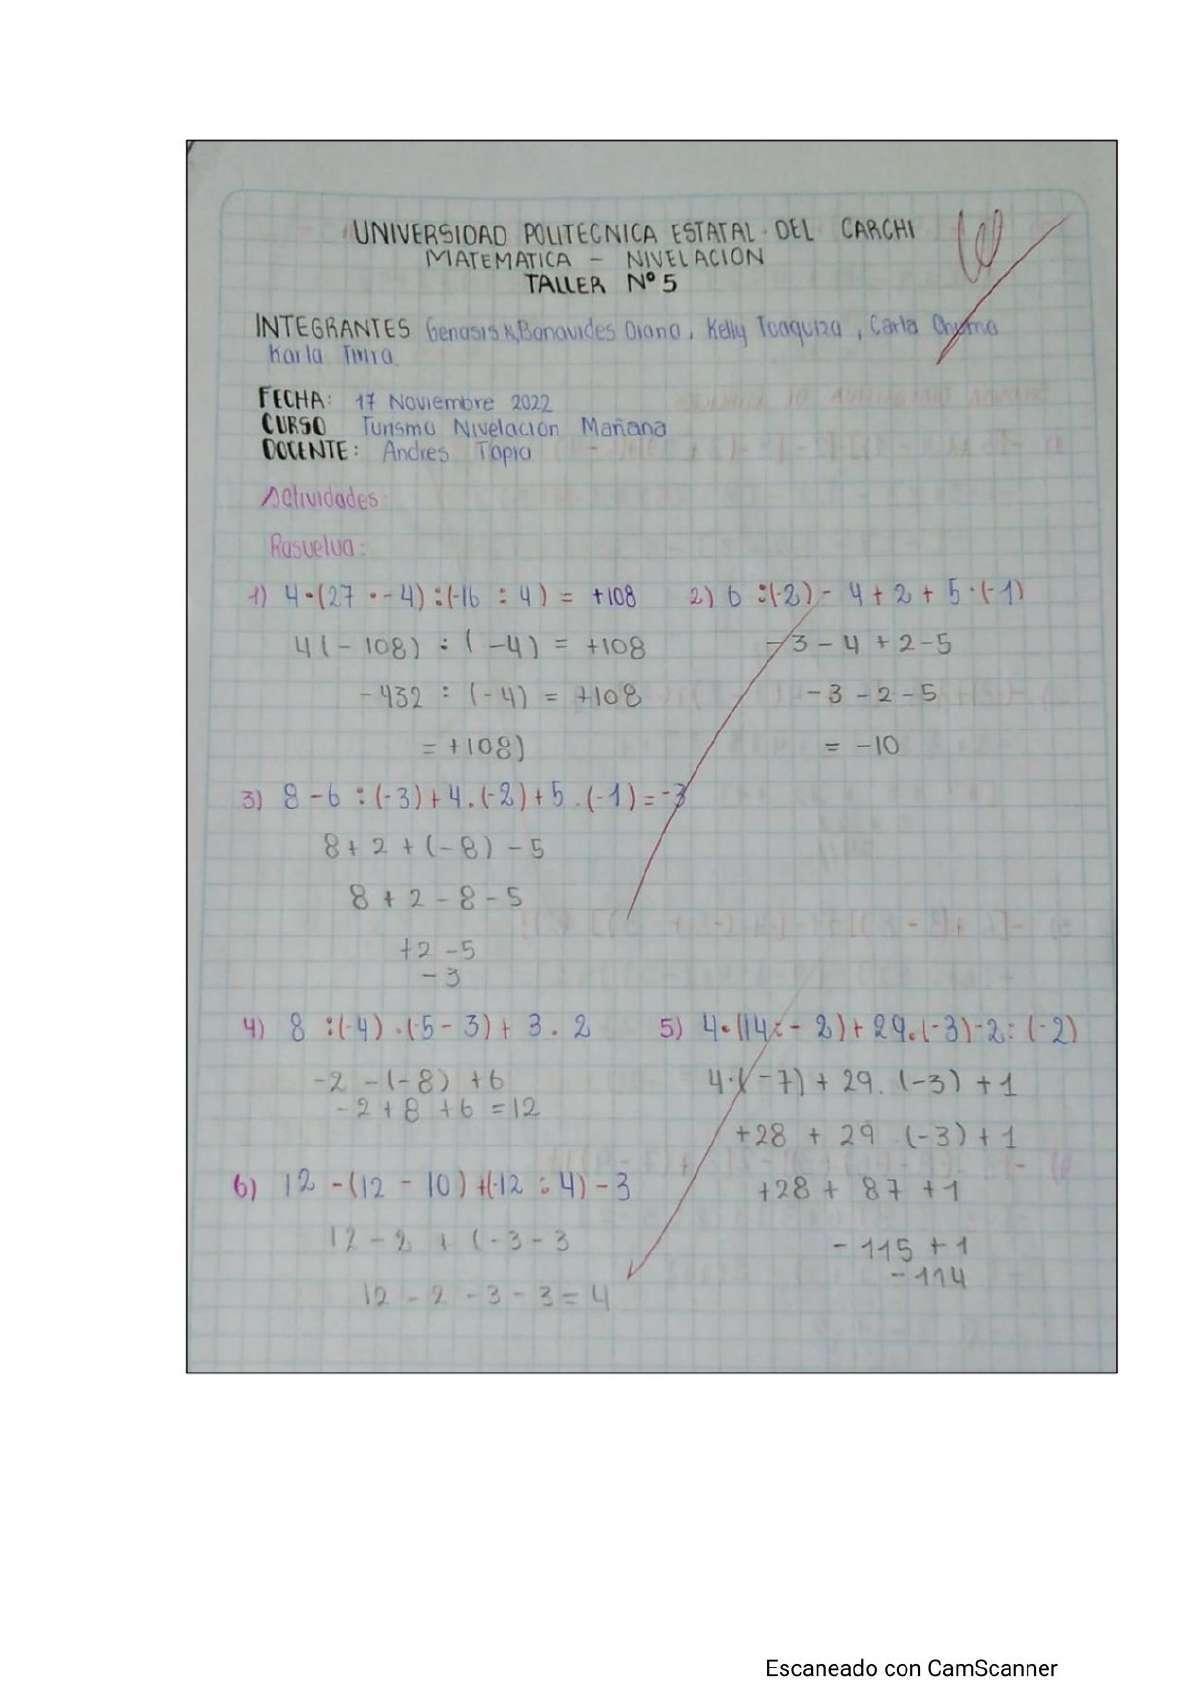 UNIVERSIDAD POLITECNICA ESTATAL DEL CARCHI
MATEMATICA - NIVELACION
TALLER Nº 5
INTEGRANTES Genasis Banavides Diana, Kelly Toaquiza, Carla
Karla
FECHA: 17 Noviembre 2022
CURSO Turismo Nivelación Mañana
DOCENTE: Andres Tapia
Actividades:
Rasuelva:
1) 4·(27 ·-4):(-16 : 4) = +108
4(-108) ÷ (-4) = +108
-432 : (-4) = +108
= +108)
2) 6 :(-2) - 4 + 2 + 5·(-1)
-3 - 4 + 2 - 5
-3 - 2 - 5
= -10
3) 8 - 6 : (-3) + 4 . (-2) + 5 . (-1) = -3
8 + 2 + (-8) - 5
8 + 2 - 8 - 5
+2 - 5
-3
4) 8 :(-4) ·(-5 - 3) + 3 . 2
-2 -(-8) +6
-2 + 8 + 6 = 12
5) 4·(14:- 2) + 29.(-3)-2:(-2)
4·(-7) + 29. (-3) + 1
+28 + 29 (-3) + 1
+28 + 87 + 1
- 115 + 1
- 114
6) 12 -(12 - 10) +(-12 : 4) - 3
12 - 2 + (-3 - 3
12 - 2 - 3 - 3 = 4
Escaneado con CamScanner